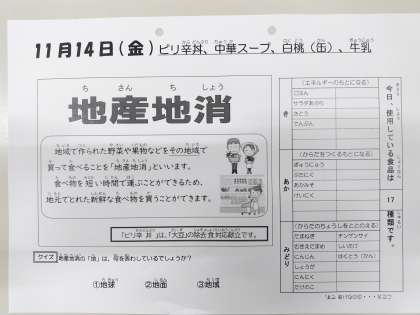 11月14日(金) ピリ辛丼、中華スープ、白桃(缶)、牛乳
ち さん ち しょう
地産地消
地域で作られた野菜や果物などをその地域で
買って食べることを「地産地消」といいます。
食べ物を短い時間で運ぶことができるため、
地元でとれた新鮮な食べ物を買うことができます。
「ピリ辛丼」は、「大豆」の除去食対応献立です。
クイズ 地産地消の「地」は、何を表わしているでしょうか?
①地球 ②地面 ③地域
今日、使用している食品は 17 種類です。
き
(エネルギーのもとになる)
ごはん
サラダあぶら
さとう
でんぷん
あか
(からだをつくるもとになる)
ぎゅうにゅう
ぶたにく
あかみそ
けいにく
みどり
(からだのちょうしをととのえる)
たまねぎ チンゲンサイ
むきえだまめ しいたけ
にんじん はくとう(かん)
しょうが
にんにく
たけのこ